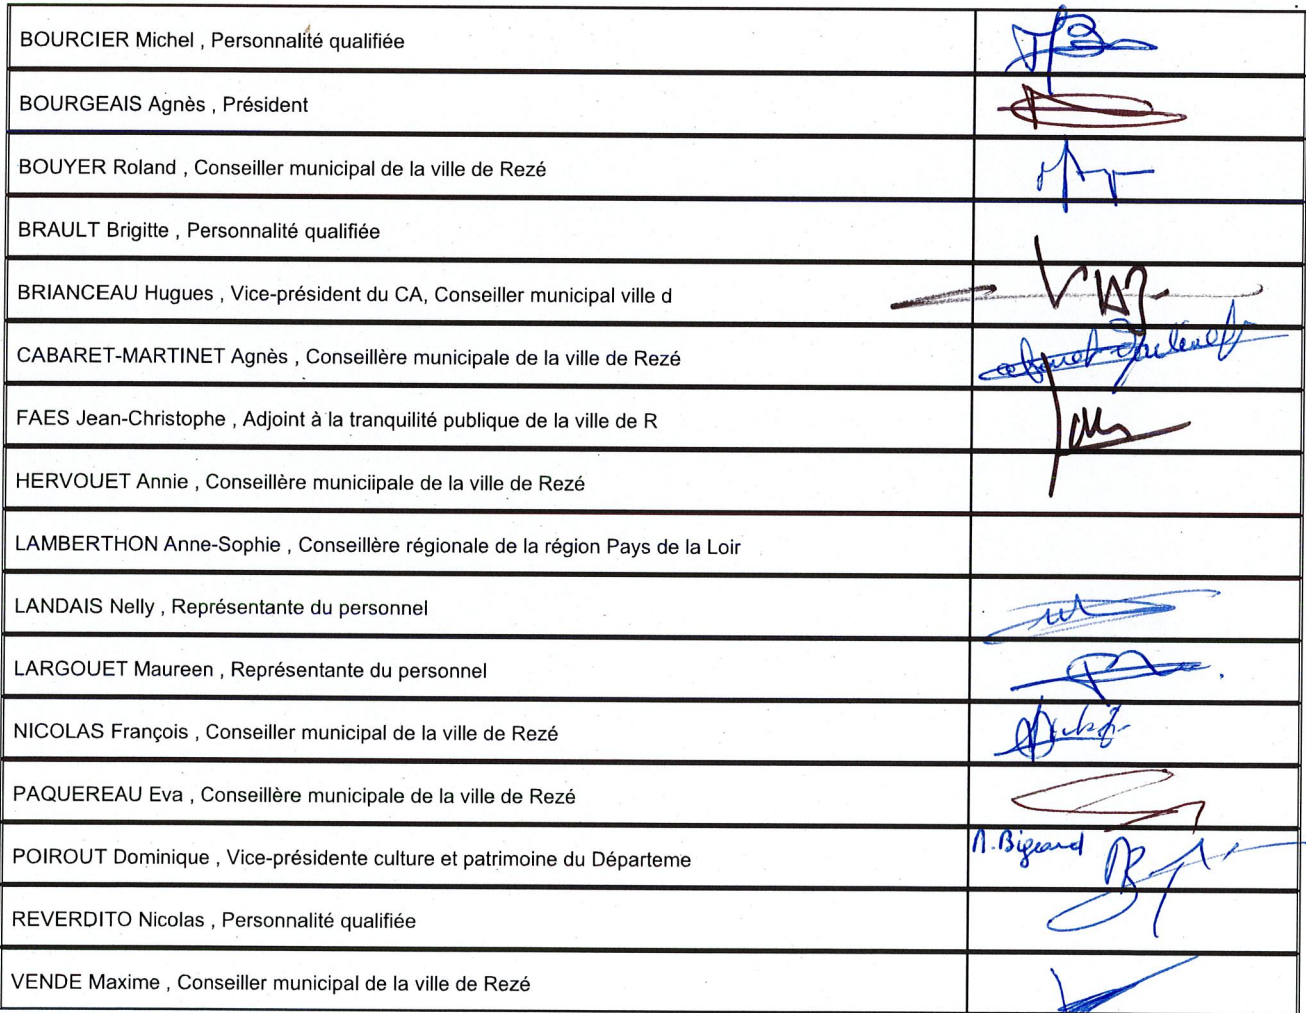 BOURCIER Michel , Personnalité qualifiée
BOURGEAIS Agnès , Président
BOUYER Roland , Conseiller municipal de la ville de Rezé
BRAULT Brigitte , Personnalité qualifiée
BRIANCEAU Hugues , Vice-président du CA, Conseiller municipal ville d
CABARET-MARTINET Agnès , Conseillère municipale de la ville de Rezé
FAES Jean-Christophe , Adjoint à la tranquilité publique de la ville de R
HERVOUET Annie , Conseillère municiipale de la ville de Rezé
LAMBERTHON Anne-Sophie , Conseillère régionale de la région Pays de la Loir
LANDAIS Nelly , Représentante du personnel
LARGOUET Maureen , Représentante du personnel
NICOLAS François , Conseiller municipal de la ville de Rezé
PAQUEREAU Eva , Conseillère municipale de la ville de Rezé
POIROUT Dominique , Vice-présidente culture et patrimoine du Départeme
Bigeard
REVERDITO Nicolas , Personnalité qualifiée
VENDE Maxime , Conseiller municipal de la ville de Rezé